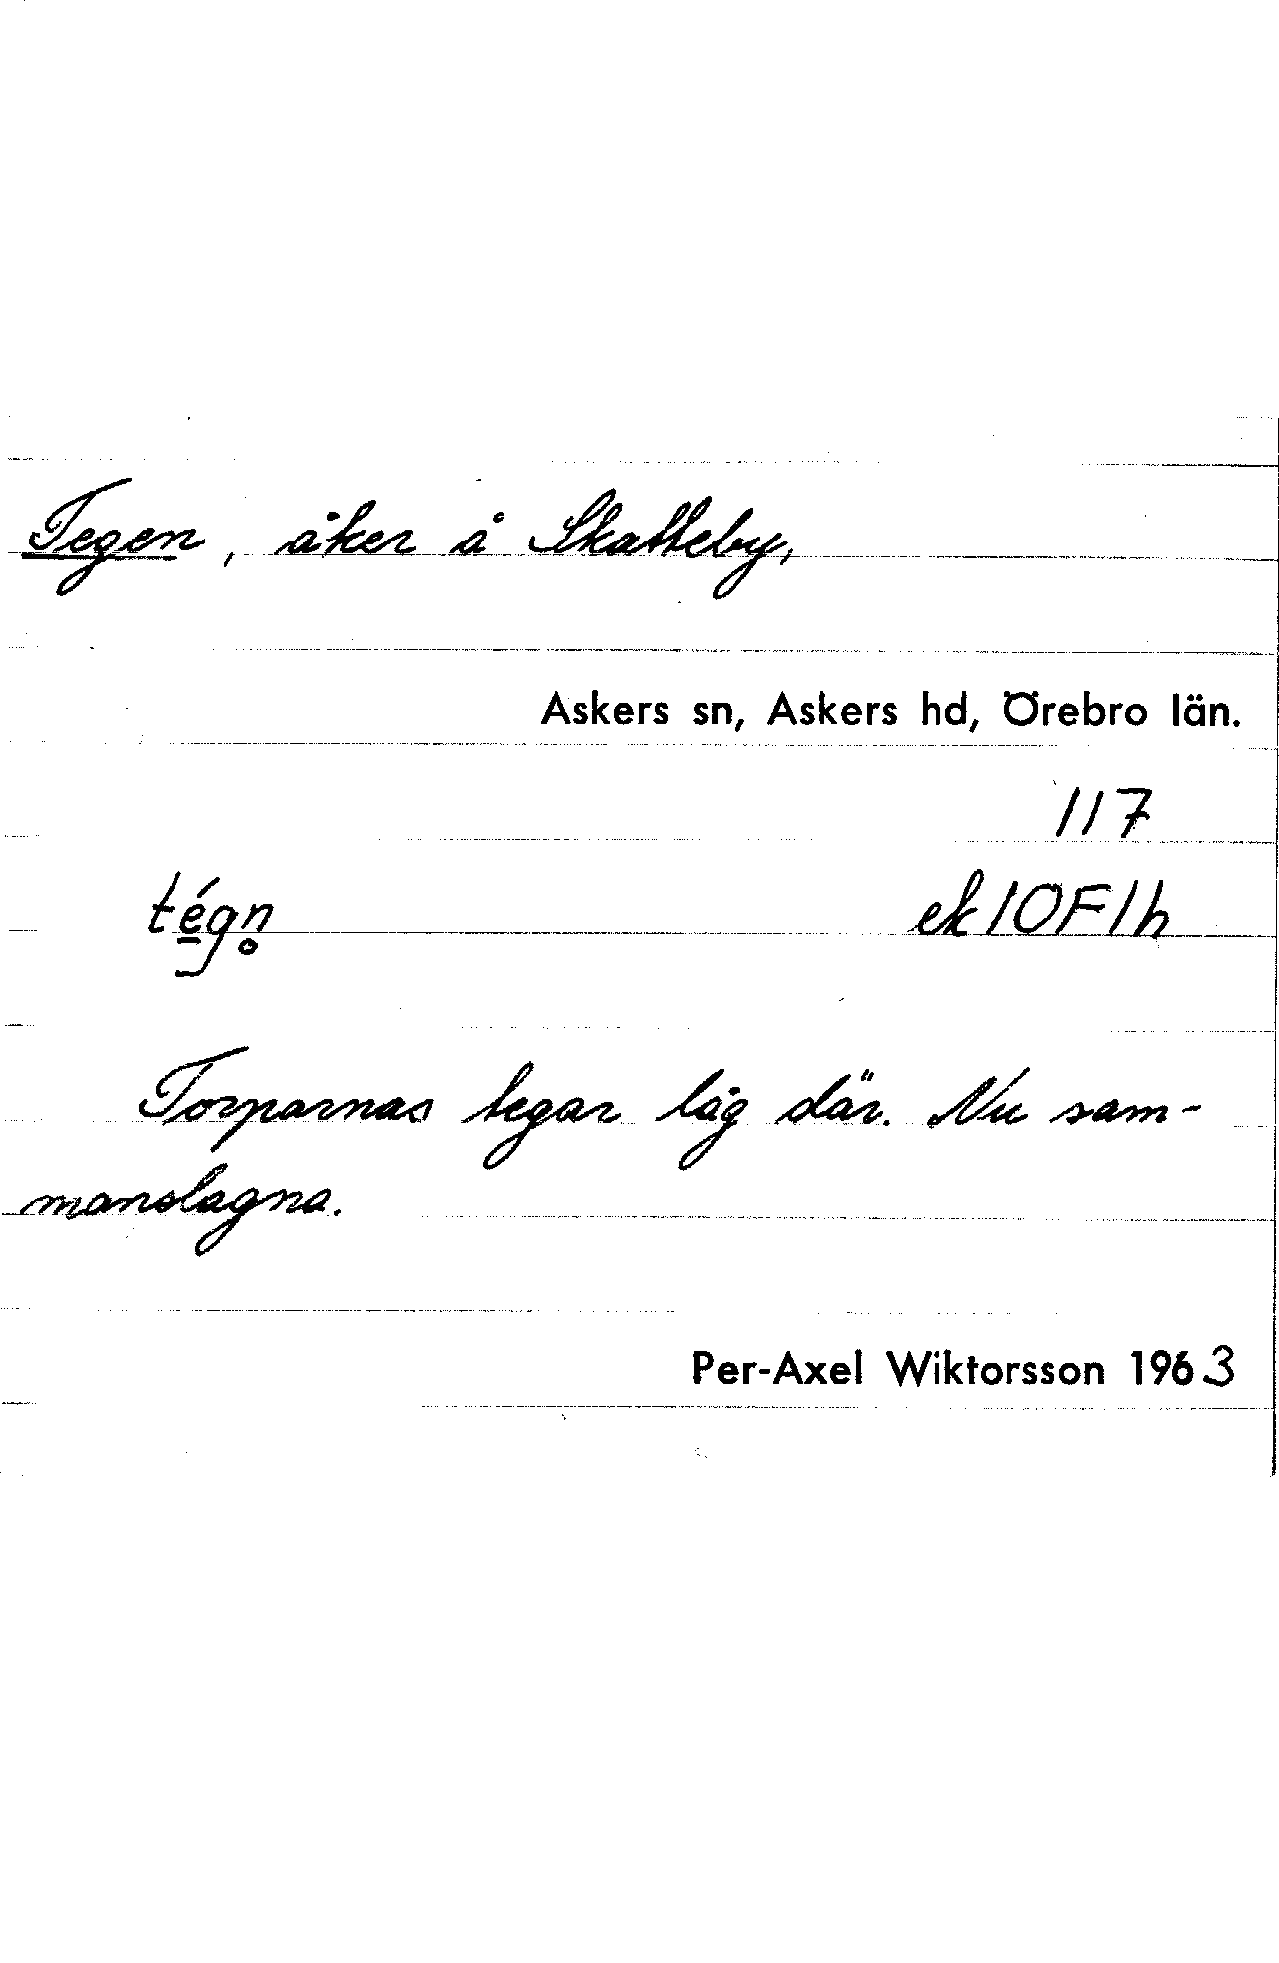 Tegen, åker å Skatteby,
Askers sn, Askers hd, Örebro län.
117
tégn̥ ek 10F1h
Torparnas tegar låg där. Nu sam-
manslagna.
Per-Axel Wiktorsson 1963